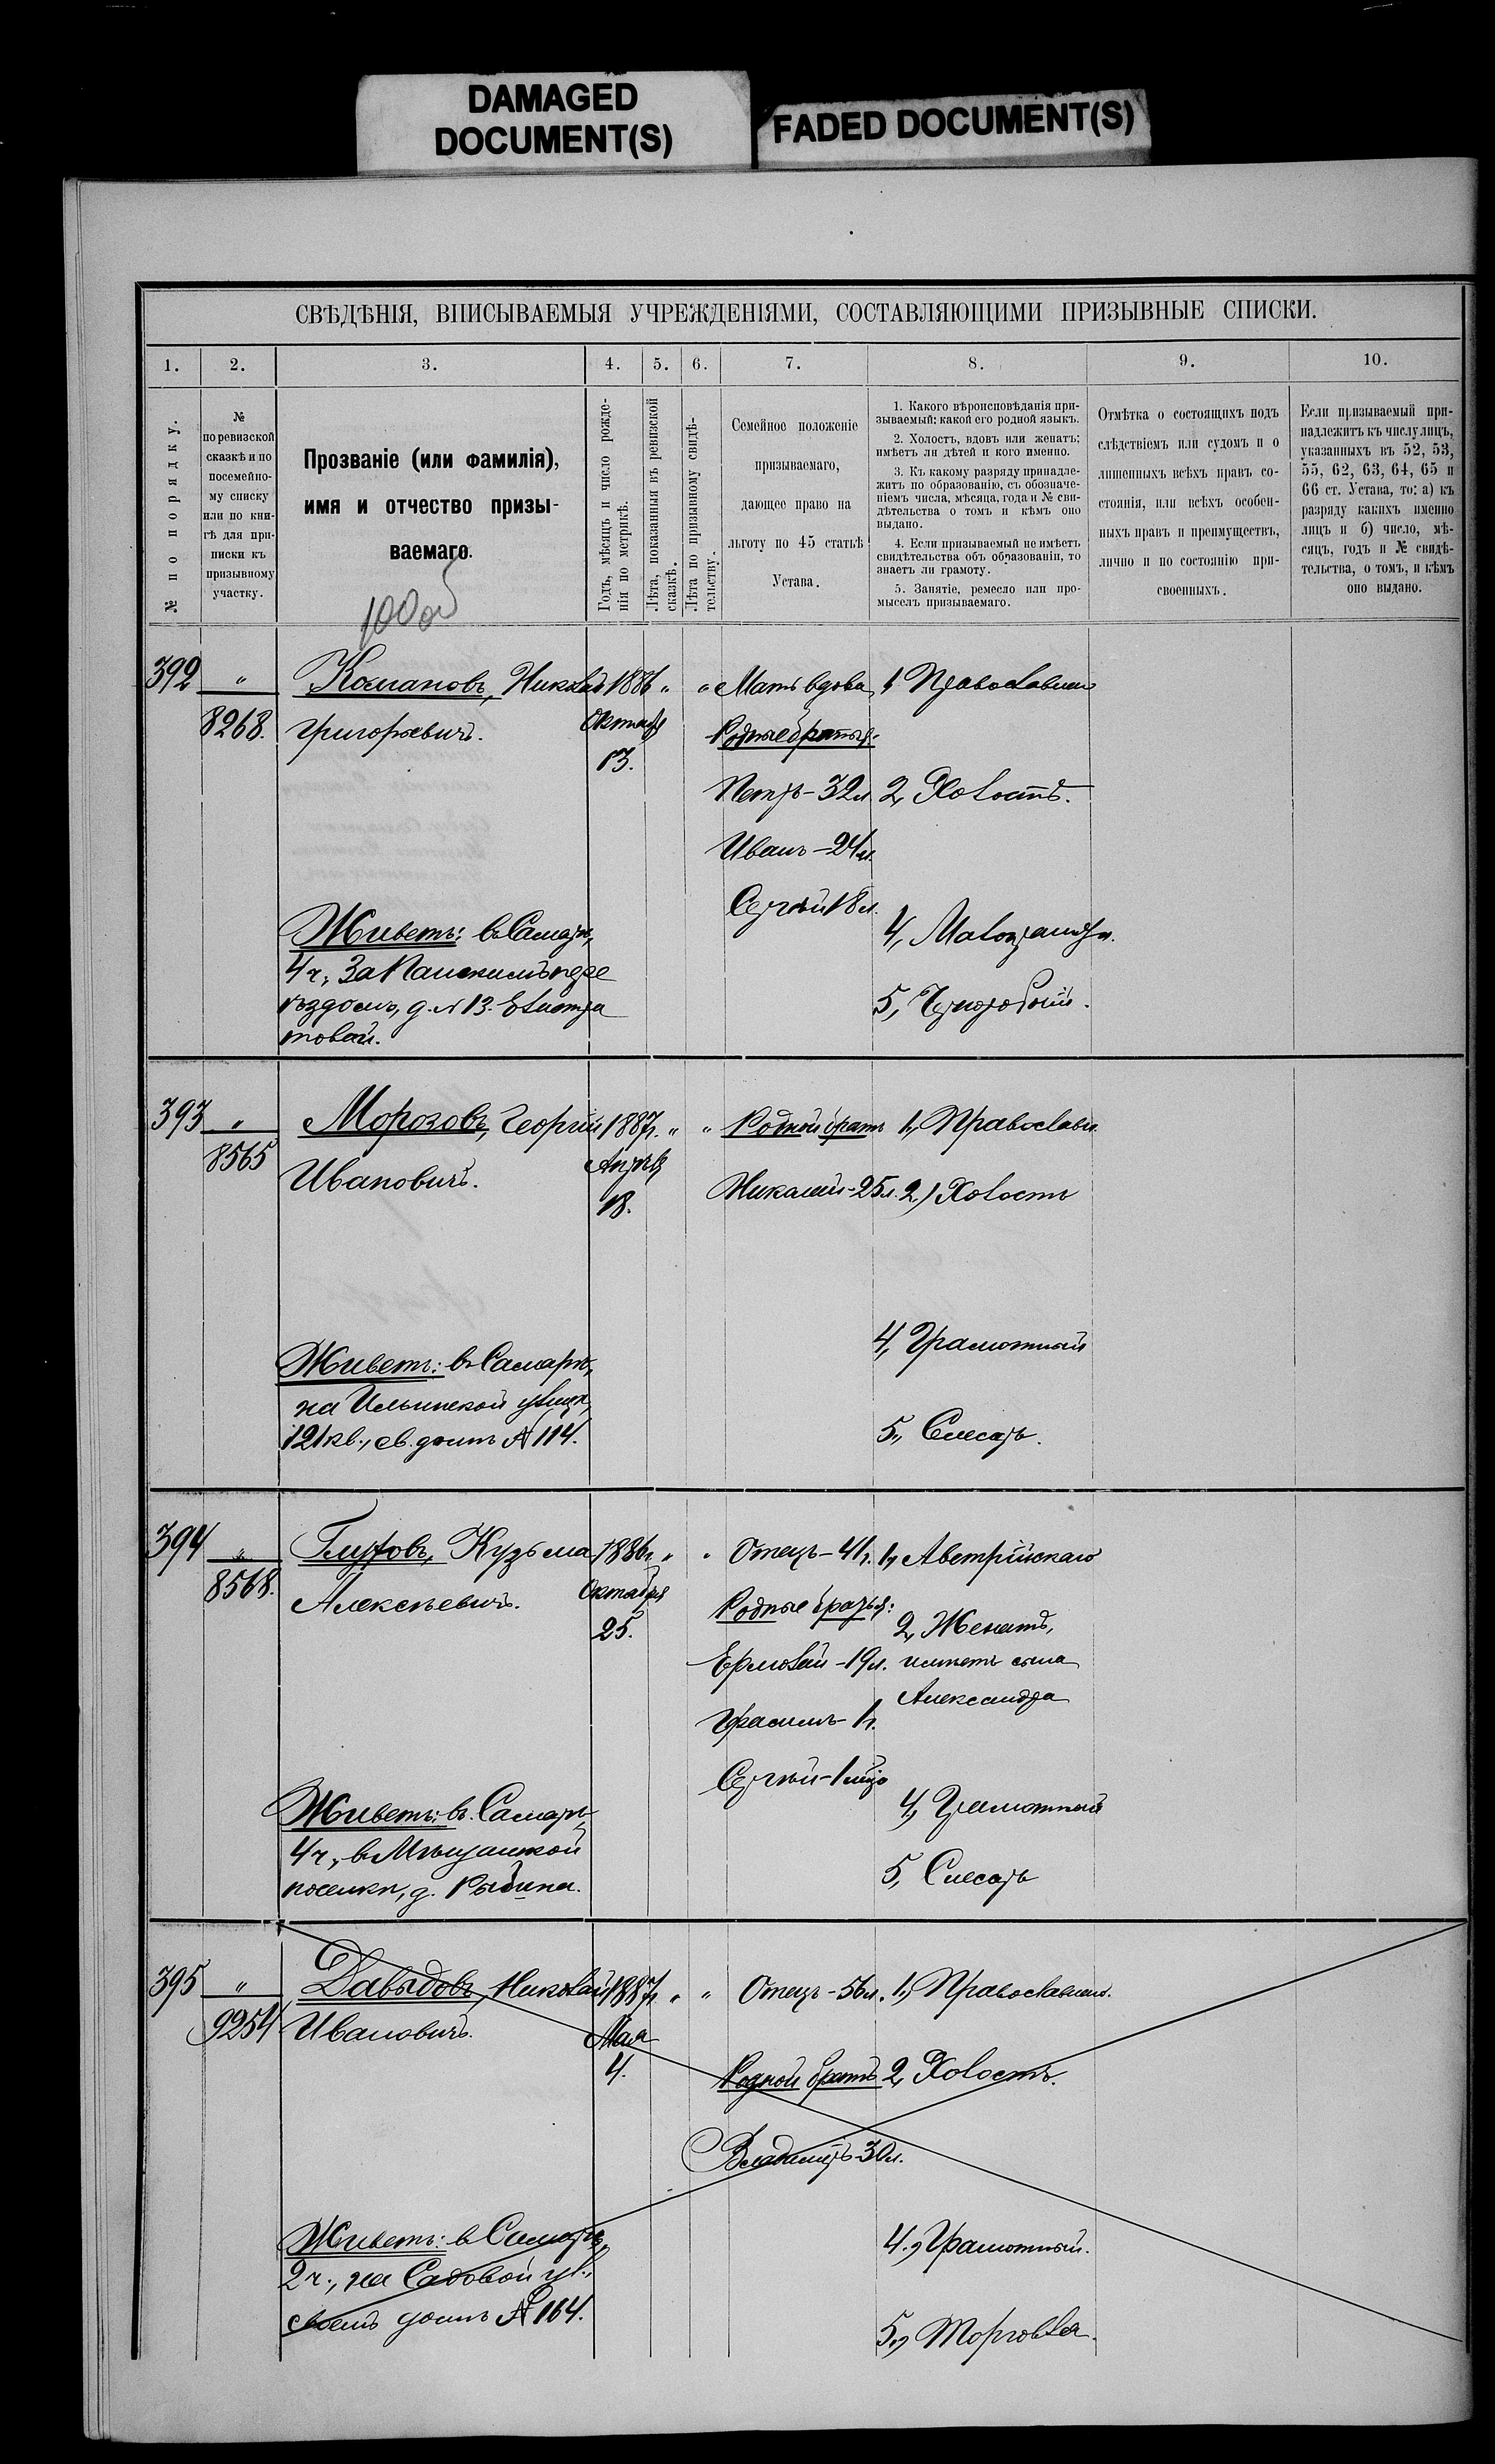 DAMAGED
DOCUMENT(S)
FADED DOCUMENT(S)
СВѢДѢНІЯ, ВПИСЫВАЕМЫЯ УЧРЕЖДЕНІЯМИ, СОСТАВЛЯЮЩИМИ ПРИЗЫВНЫЕ СПИСКИ.
1. 2. 3. 4. 5. 6. 7. 8. 9. 10.
№ по порядку.
№
по ревизской
сказкѣ и по
посемейно-
му списку
или по кни-
гѣ для при-
писки къ
призывному
участку.
Прозваніе (или фамилія),
имя и отчество призы-
ваемаго.
Годъ, мѣсяцъ и число рожде-
нія по метрикѣ.
Лѣта, показанныя въ ревизской
сказкѣ.
Лѣта по призывному свидѣ-
тельству.
Семейное положеніе
призываемаго,
дающее право на
льготу по 45 статьѣ
Устава.
1. Какого вѣроисповѣданія при-
зываемый: какой его родной языкъ.
2. Холостъ, вдовъ или женатъ;
имѣетъ ли дѣтей и кого именно.
3. Къ какому разряду принадле-
житъ по образованію, съ обозначе-
ніемъ числа, мѣсяца, года и № сви-
дѣтельства о томъ и кѣмъ оно
выдано.
4. Если призываемый не имѣетъ
свидѣтельства объ образованіи, то
знаетъ ли грамоту.
5. Занятіе, ремесло или про-
мыселъ призываемаго.
Отмѣтка о состоящихъ подъ
слѣдствіемъ или судомъ и о
лишенныхъ всѣхъ правъ со-
стоянія, или всѣхъ особен-
ныхъ правъ и преимуществъ,
лично и по состоянію при-
своенныхъ.
Если призываемый при-
надлежитъ къ числу лицъ,
указанныхъ въ 52, 53,
55, 62, 63, 64, 65 и
66 ст. Устава, то: а) къ
разряду какихъ именно
лицъ и б) число, мѣ-
сяцъ, годъ и № свидѣ-
тельства, о томъ, и кѣмъ
оно выдано.
392 "
8268.
Григорьевичъ.
1886 " "
Октября
13.
Мать вдова
Родные братья:
Петръ - 32 л.
Иванъ - 24 л.
Сергѣй 18 л.
1, Православн
2, Холостъ.
4, Малограмотн.
5, Чернорабочій.
Живетъ: въ Самарѣ,
4 ч., За Панскимъ пере
ѣздомъ, д. № 13. Елистра
товой.
393 "
8565
Морозовъ, Георгій
Ивановичъ.
1887 г. " "
Апрѣля
18.
Родной братъ
Николай - 25 л.
1, Православн.
2.) Холостъ
4, Грамотный
5., Слесарь.
Живетъ: въ Самарѣ,
на Ильинской улицѣ,
121 кв., св. домъ № 114.
394 "
8568.
Кузьма
Алексѣевичъ.
1886 г. " "
Октября
25.
Отецъ - 41 г.
Родные братья:
Ермолай - 19 л.
Герасимъ - 1 г.
Сергѣй - 1 мѣс
1, Австрійскаго
2, Женатъ,
имѣетъ сына
Александра
4, Грамотный
5, Слесарь
Живетъ: въ Самарѣ,
4 ч., въ Мѣщанской
поселкѣ, д. Рыбина.
395 "
9254
Давыдовъ, Николай
Ивановичъ.
1887 г. " "
Мая
4.
Отецъ - 56 л.
Родной братъ
Владиміръ - 30 л.
1.) Православн.
2, Холостъ.
4., Грамотный.
5., Торговля.
Живетъ: въ Самарѣ,
2 ч., на Садовой ул.,
своемъ домѣ № 164.